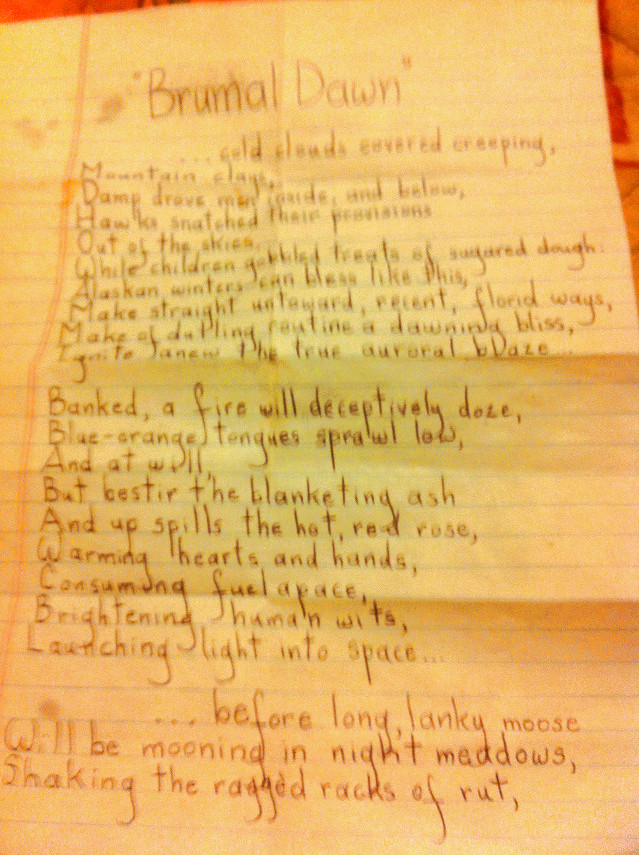 "Brumal Dawn"
... cold clouds covered creeping,
Mountain clays,
Damp drove men inside, and below,
Hawks snatched their provisions
Out of the skies.
While children gobbled treats of sugared dough:
Alaskan winters can bless like this,
Make straight untoward, recent, florid ways,
Make of dulling routine a dawning bliss,
Ignite anew the true auroral blaze...
Banked, a fire will deceptively doze,
Blue-orange tongues sprawl low,
And at will,
But bestir the blanketing ash
And up spills the hot, red rose,
Warming hearts and hands,
Consuming fuel apace,
Brightening human wits,
Launching light into space...
... before long, lanky moose
Will be mooning in night meadows,
Shaking the ragged racks of rut,